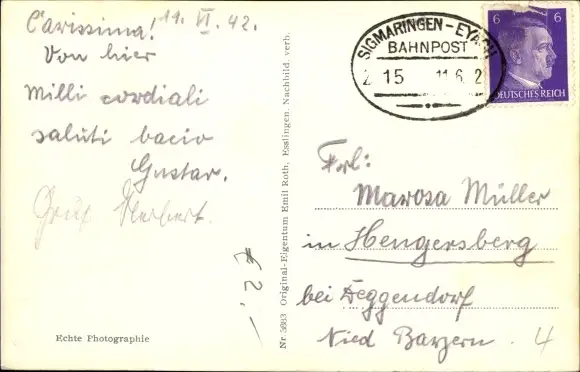 Carissima! 11. VI. 42.
Von hier
milli cordiali
saluti bacio
Gustav.
Gruß Herbert.
Echte Photographie
€ 2,-
Nr. 5693 Original-Eigentum Emil Roth, Esslingen, Nachbild. verb.
SIGMARINGEN-EYACH
BAHNPOST
2 15 11.6. 2
6 6
DEUTSCHES REICH
Frl:
Marosa Müller
in Hengersberg
bei Deggendorf
Nied Bayern. 4